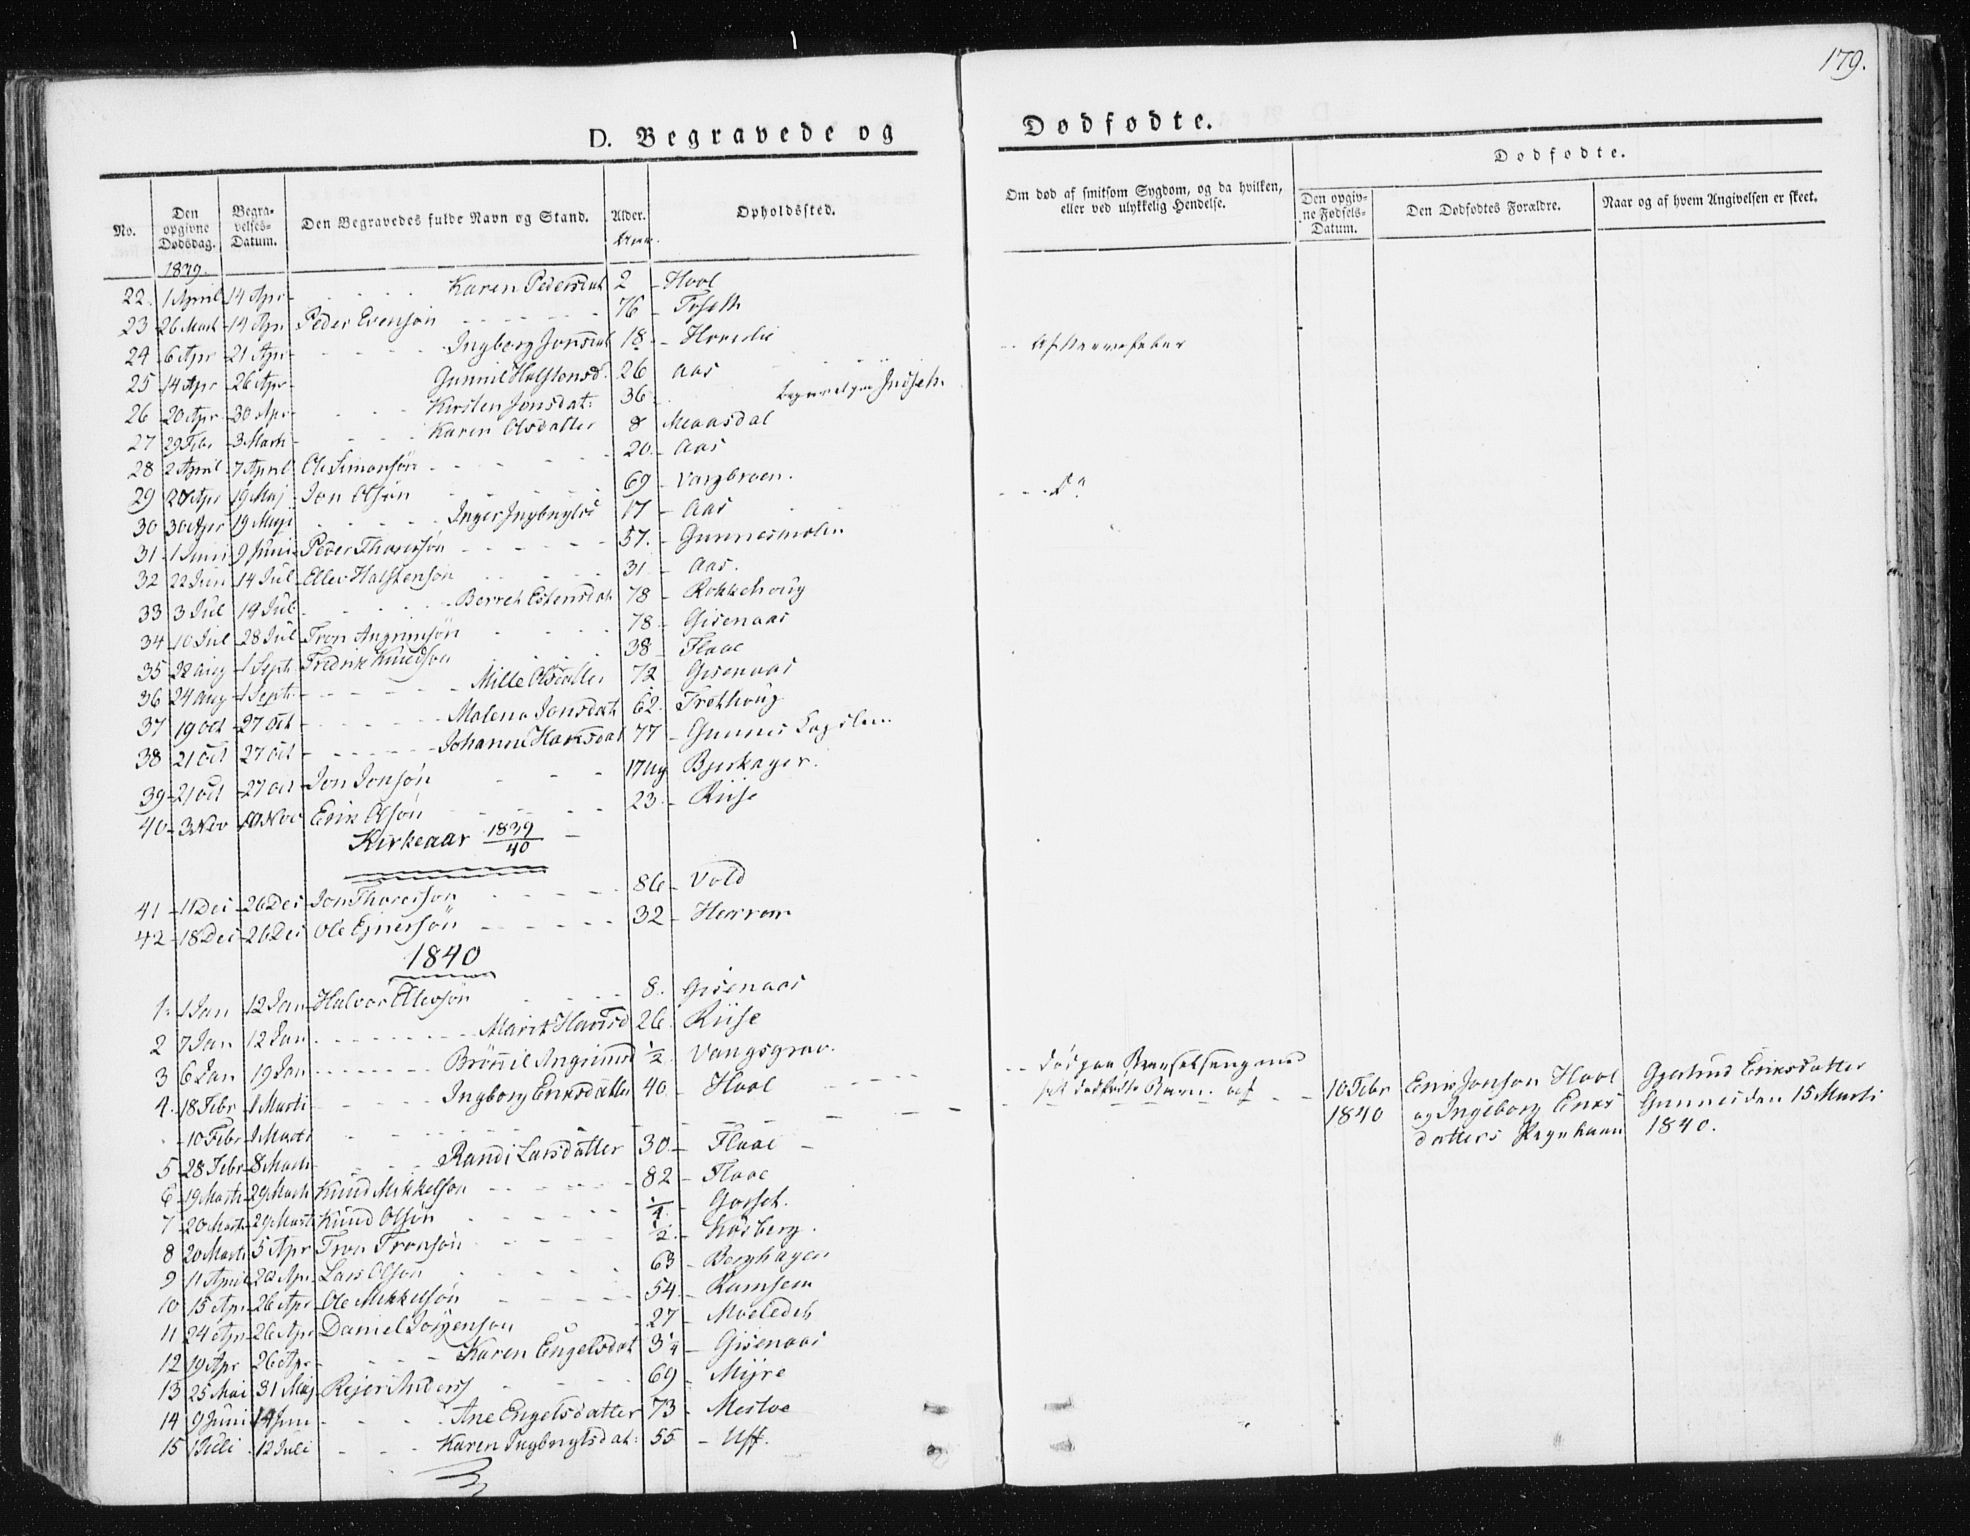 179.
D. Begravede og Dødfødte.
No. Den opgivne Dødsdag. Begravelses-Datum. Den Begravedes fulde Navn og Stand. Alder. Opholdssted. Om død af smitsom Sygdom, og da hvilken, eller ved ulykkelig Hendelse. Den opgivne Fødsels-Datum. Den Dødfødtes Forældre. Naar og af hvem Angivelsen er skeet.
Dødfødte.
1839.
22. 1 April 14 Apr Karen Pedersdat 2 Hool
23 26 Mart 14 Apr Peder Evensøn 76 Toseth
24 6 Apr 21 Apr Ingborg Jonsdat 18
25 14 Apr 26 Apr Gunnil Halstensd. 26 Aas
26 20 Apr 30 Apr Kirsten Jonsdat: 36 Indseth.
27 29 Febr 3 Marti Karen Olsdatter 8 Meaasdal
28 2 April 7 April Ole Simonsøn 20 Aas
29 20 Apr 19 Maj Jon Olsøn 69 Vangbroen. Do
30 30 Apr 19 Maji Inger Ingbrigtsd 17 Aas
31 1 Juni 9 Juni Peder Thoresøn 57. Gunnesmolin
32 22 Jun 14 Jul Ellev Halstensøn 31 Aas.
33 3 Jul 14 Jul Berret Estensdat 78 Rokkehoug
34 10 Jul 28 Jul Tron Angrimsøn 78 Gisenaas
35 22 Aug 1 Sept. Fredrik Knudsøn 38 Flaae
36 24 Aug 1 Sept: Mille Olsdatter 72 Gisenaas
37 19 Oct 27 Oct Malena Jonsdat 62. Trøthoug
38 21 Oct 27 Oct Johanne Hansdat 77 Gunnes
39 21 Oct 27 Oct Jon Jonsøn 17 Ug Bjerkager.
40 3 Nov 10 Nov Erik Olsøn 23. Riise
Kirkeaar 1839/40
41 11 Dec 26 Dec Jon Thoresøn 86 Vold
42 18 Dec 26 Dec Ole Ejnersøn 32 Herrem
1840
1. 1 Jan 12 Jan Halvor Ellevsøn 8. Gisenaas
2 7 Jan 12 Jan Marit Hansd 26. Riise
3 6 Jan 19 Jan Brønil Angrimsd 1/2 Vangsgrav.
4. 18 Febr 1 Marti Ingborg Eriksdatter 40 Hool død paa Barselseng med
10 Febr 1 Marti sit dødfødte Barn. 10 Febr 1840 Erik Jonsøn Hool og Ingeborg Eriks datters Pigebarn Gjertrud Eriksdatter Gunnes den 15 Marti 1840.
5 28 Febr 8 Marti Randi Larsdatter 30 Flaae
6 19 Marti 29 Marti Knud Mikkelsøn 82 Flaae
7 20 Marti 29 Marti Knud Olsøn 1/4 Gorset.
8 20 Marti 5 Apr Tron Tronsøn 1/2 Kosberg.
9 11 April 20 Apr Lars Olsøn 63 Berghagen
10 15 Apr 26 Apr Ole Mikkelsøn 54 Ramsem
11 24 Apr 26 Apr Daniel Jørgensøn 27
12 19 Apr 26 Apr Karen Engelsdat 3 1/4 Gisenaas
13 25 Mai 31 Maj Rejer Anders 69 Myre
14 9 Juni 14 Jun Ane Engelsdatter 73 Mestve
15 1 Juli 12 Juli Karen Ingbrigtsdat: 55 Uff.